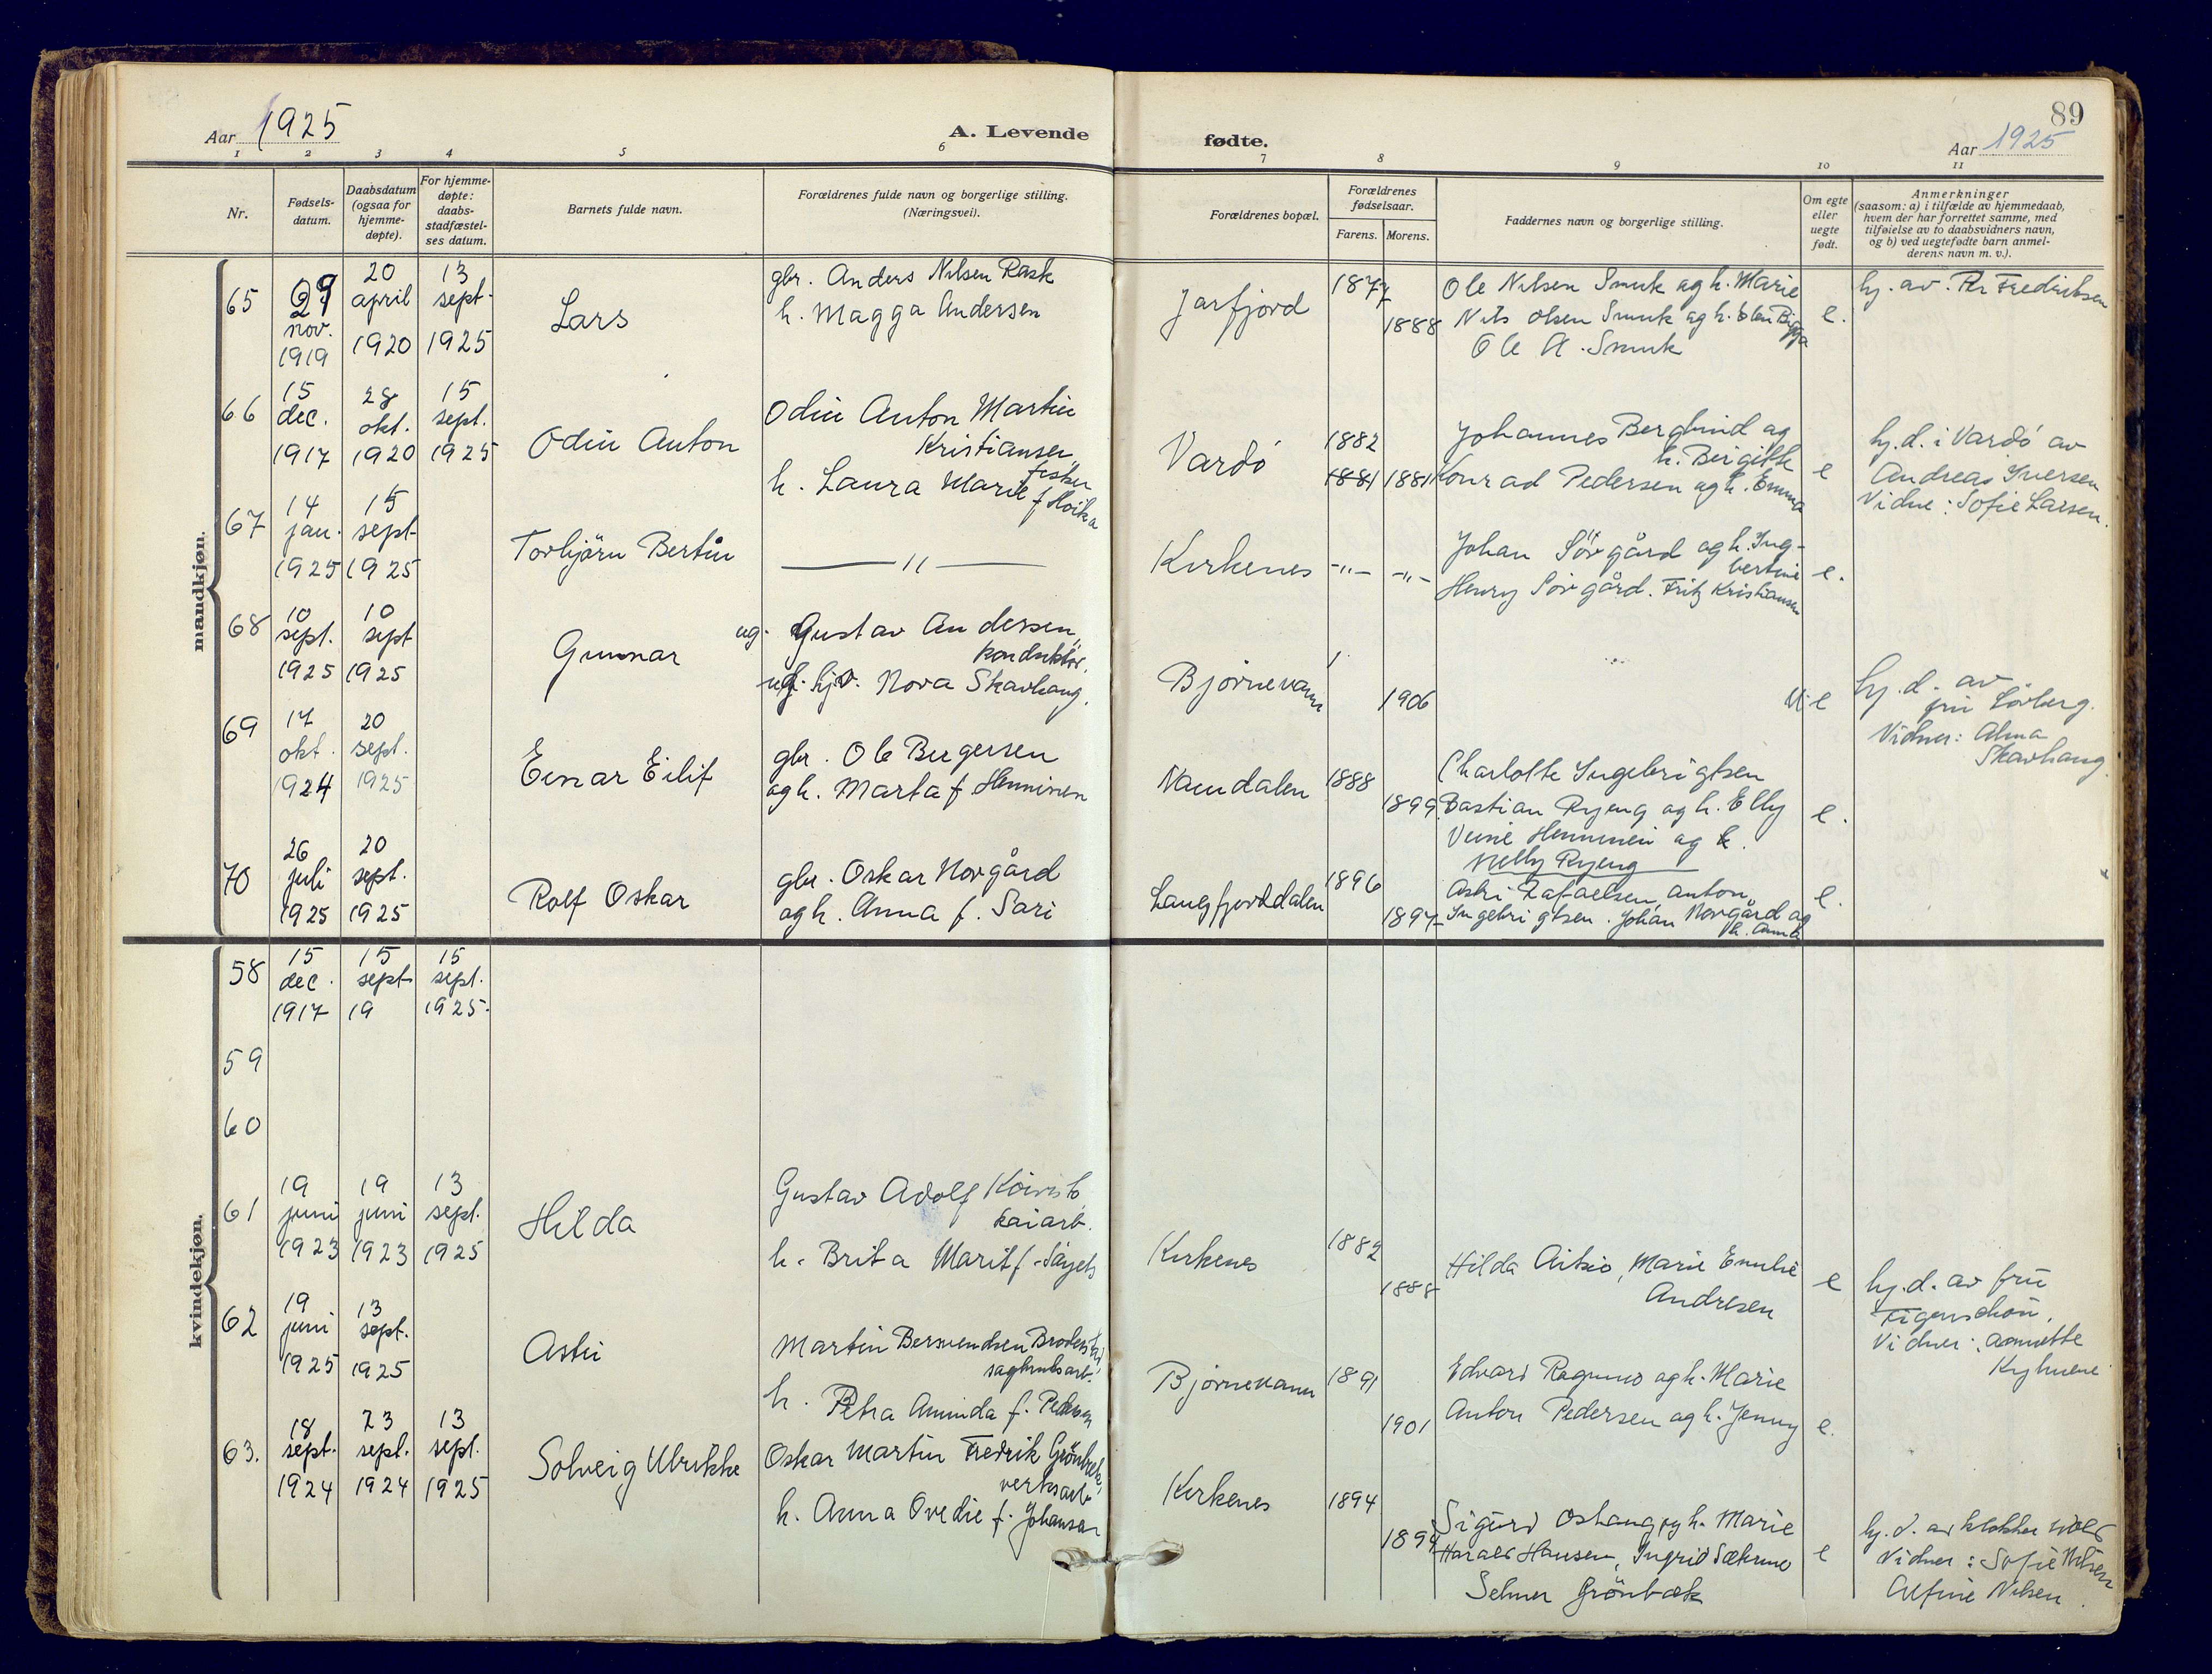 89
Aar 1925
A. Levende
fødte.
Aar 1925
1 2 3 4 5 6 7 8 9 10 11
Nr.
Fødsels-
datum.
Daabsdatum
(ogsaa for
hjemme-
døpte).
For hjemme-
døpte:
daabs-
stadfæstel-
ses datum.
Barnets fulde navn.
Forældrenes fulde navn og borgerlige stilling.
(Næringsvei).
Forældrenes bopæl.
Forældrenes
fødselsaar.
Farens. Morens.
Faddernes navn og borgerlige stilling.
Om egte
eller
uegte
født.
Anmerkninger
(saasom: a) i tilfælde av hjemmedaab,
hvem der har forrettet samme, med
tilføielse av to daabsvidners navn,
og b) ved uegtefødte barn anmel-
derens navn m. v.).
mandkjøn.
65
29
nov.
1919
20
april
1920
13
sept.
1925
Lars
gbr. Anders Nilsen Rask
h. Magga Andersen
Jarfjord
1877
1888
Ole Nilsen Smuk og h. Marie
Nils Olsen Smuk og h. Elen Bigga
Ole A. Smuk
e.
hj. av. Per Fredriksen
66
15
dec.
1917
28
okt.
1920
15
sept.
1925
Odin Anton
Odin Anton Martin
Kristiansen
fisker
h. Laura Marie f Hoika
Vardö
1882
1881 1881
Johannes Berglund og
h. Bergitte
Konrad Pedersen og h. Emma
e
hj. d. i Vardö av
Andreas Iversen
Vidne: Sofie Larsen.
67
14
jan.
1925
15
sept
1925
Torbjörn Bertin
— 11 —
Kirkenes
-"- -"-
Johan Sörgård og h. Ing-
bertine
Henry Sörgård. Fritz Kristiansen
e.
68
10
sept.
1925
10
sept
1925
Gunnar
ug. Gustav Andersen,
konduktör.
ug. hj. Nora Skavhaug.
Bjørnevann
1906
u e
hj. d. av
fru Lövberg.
Vidner: Alma
Skavhaug.
69
17
okt.
1924
20
sept.
1925
Einar Eilif
gbr. Ole Bergersen
og h. Marta f Henninen
Namdalen
1888
1899
Charlotte Ingebrigtsen
Bastian Ryeng og h. Elly
og h.
Nelly Ryeng
e.
70
26
juli
1925
20
sept.
1925
Rolf Oskar
gbr. Oskar Norgård
og h. Anna f. Sari
Langfjorddalen
1896
1897
Astri Rafaelsen, Anton
Ingebrigtsen. Johan Norgård og
h. Anna
e.
kvindekjøn.
58
15
dec.
1917
15
sept
19
15
sept.
1925.
59
60
61
19
juni
1923
19
juni
1923
13
sept.
1925
Hilda
Gustav Adolf Koivisto
kaiarb.
h. Brita Marit f.
Kirkenes
1882
1888
Hilda Aitsio, Marie Emilie
Andresen
e
hj. d. av fru
Figenschou.
Vidner: Annette
62
19
juni
1925
13
sept.
1925
Astri
Martin Bersvendsen Broderstad
sagbruksarb.
h. Petra Aminda f. Pedersen
Bjørnevann
1891
1901
Edvard Ragnmo og h. Marie
Anton Pedersen og h. Jenny
e.
63.
18
sept.
1924
23
sept.
1924
13
sept.
1925
Solveig Ulrikke
Oskar Martin Fredrik Grönbæk,
verksarb
h. Anna Ovedie f. Johansen
Kirkenes
1894
1894
Sigurd Oshaug og h. Marie
Harald Hansen, Ingrid Sætermo
Selmer Grönbæk
e
hj. d. av klokker Wold
Vidner: Sofie Nilsen
Alfine Nilsen.